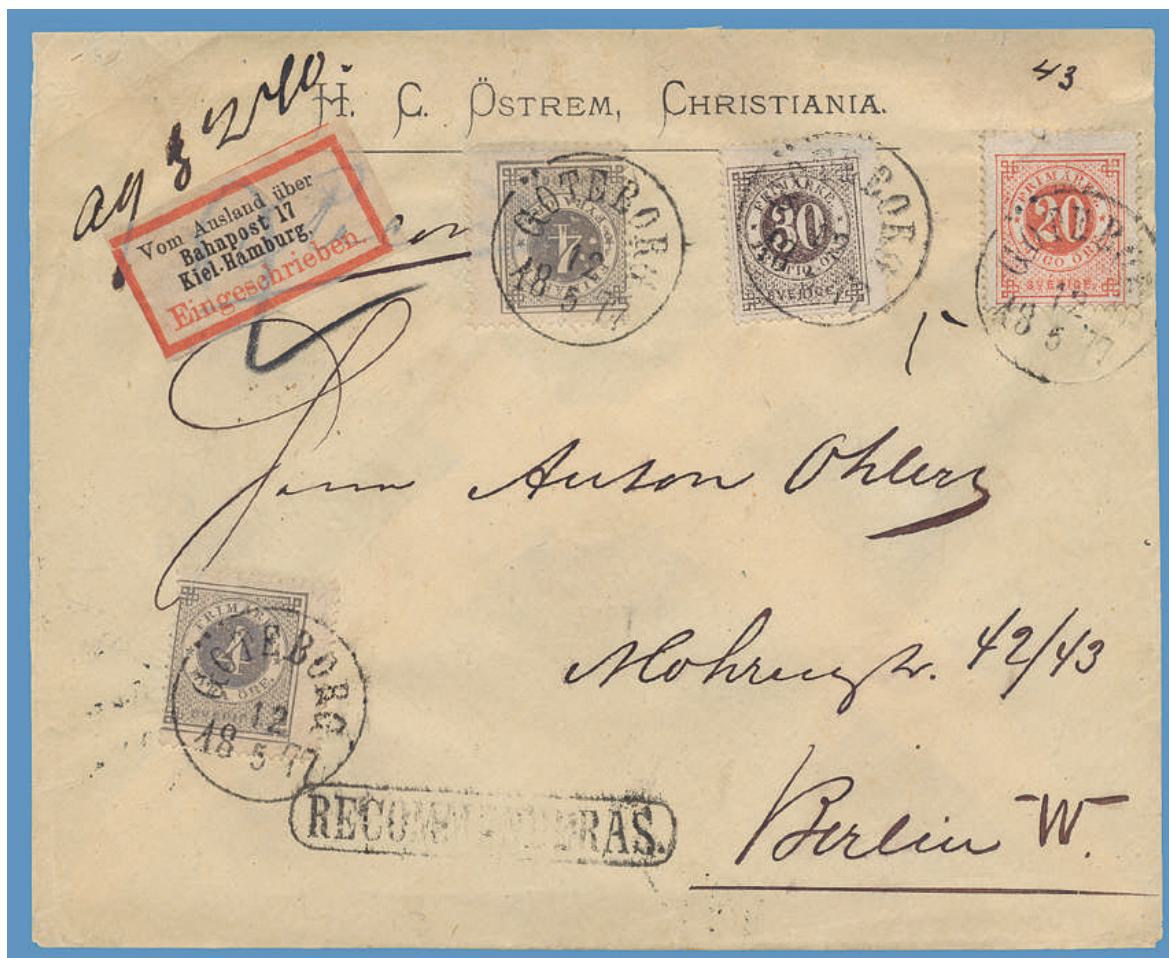 43
H. C. ÖSTREM, CHRISTIANIA.
Vom Ausland über
Bahnpost 17
Kiel-Hamburg.
Eingeschrieben.
GÖTEBORG
18 5 77
4
FRIMÄRKE
30
TRETTIO ÖRE
SVERIGE
FRIMÄRKE
20
TJUGO ÖRE
SVERIGE
GÖTEBORG
12
18 5 77
Herrn Anton Ohlerz
Mohrenstr. 42/43
FRIMÄRKE
4
FYRA ÖRE
SVERIGE
GÖTEBORG
12
18 5 77
RECOMMENDERAS.
Berlin W.